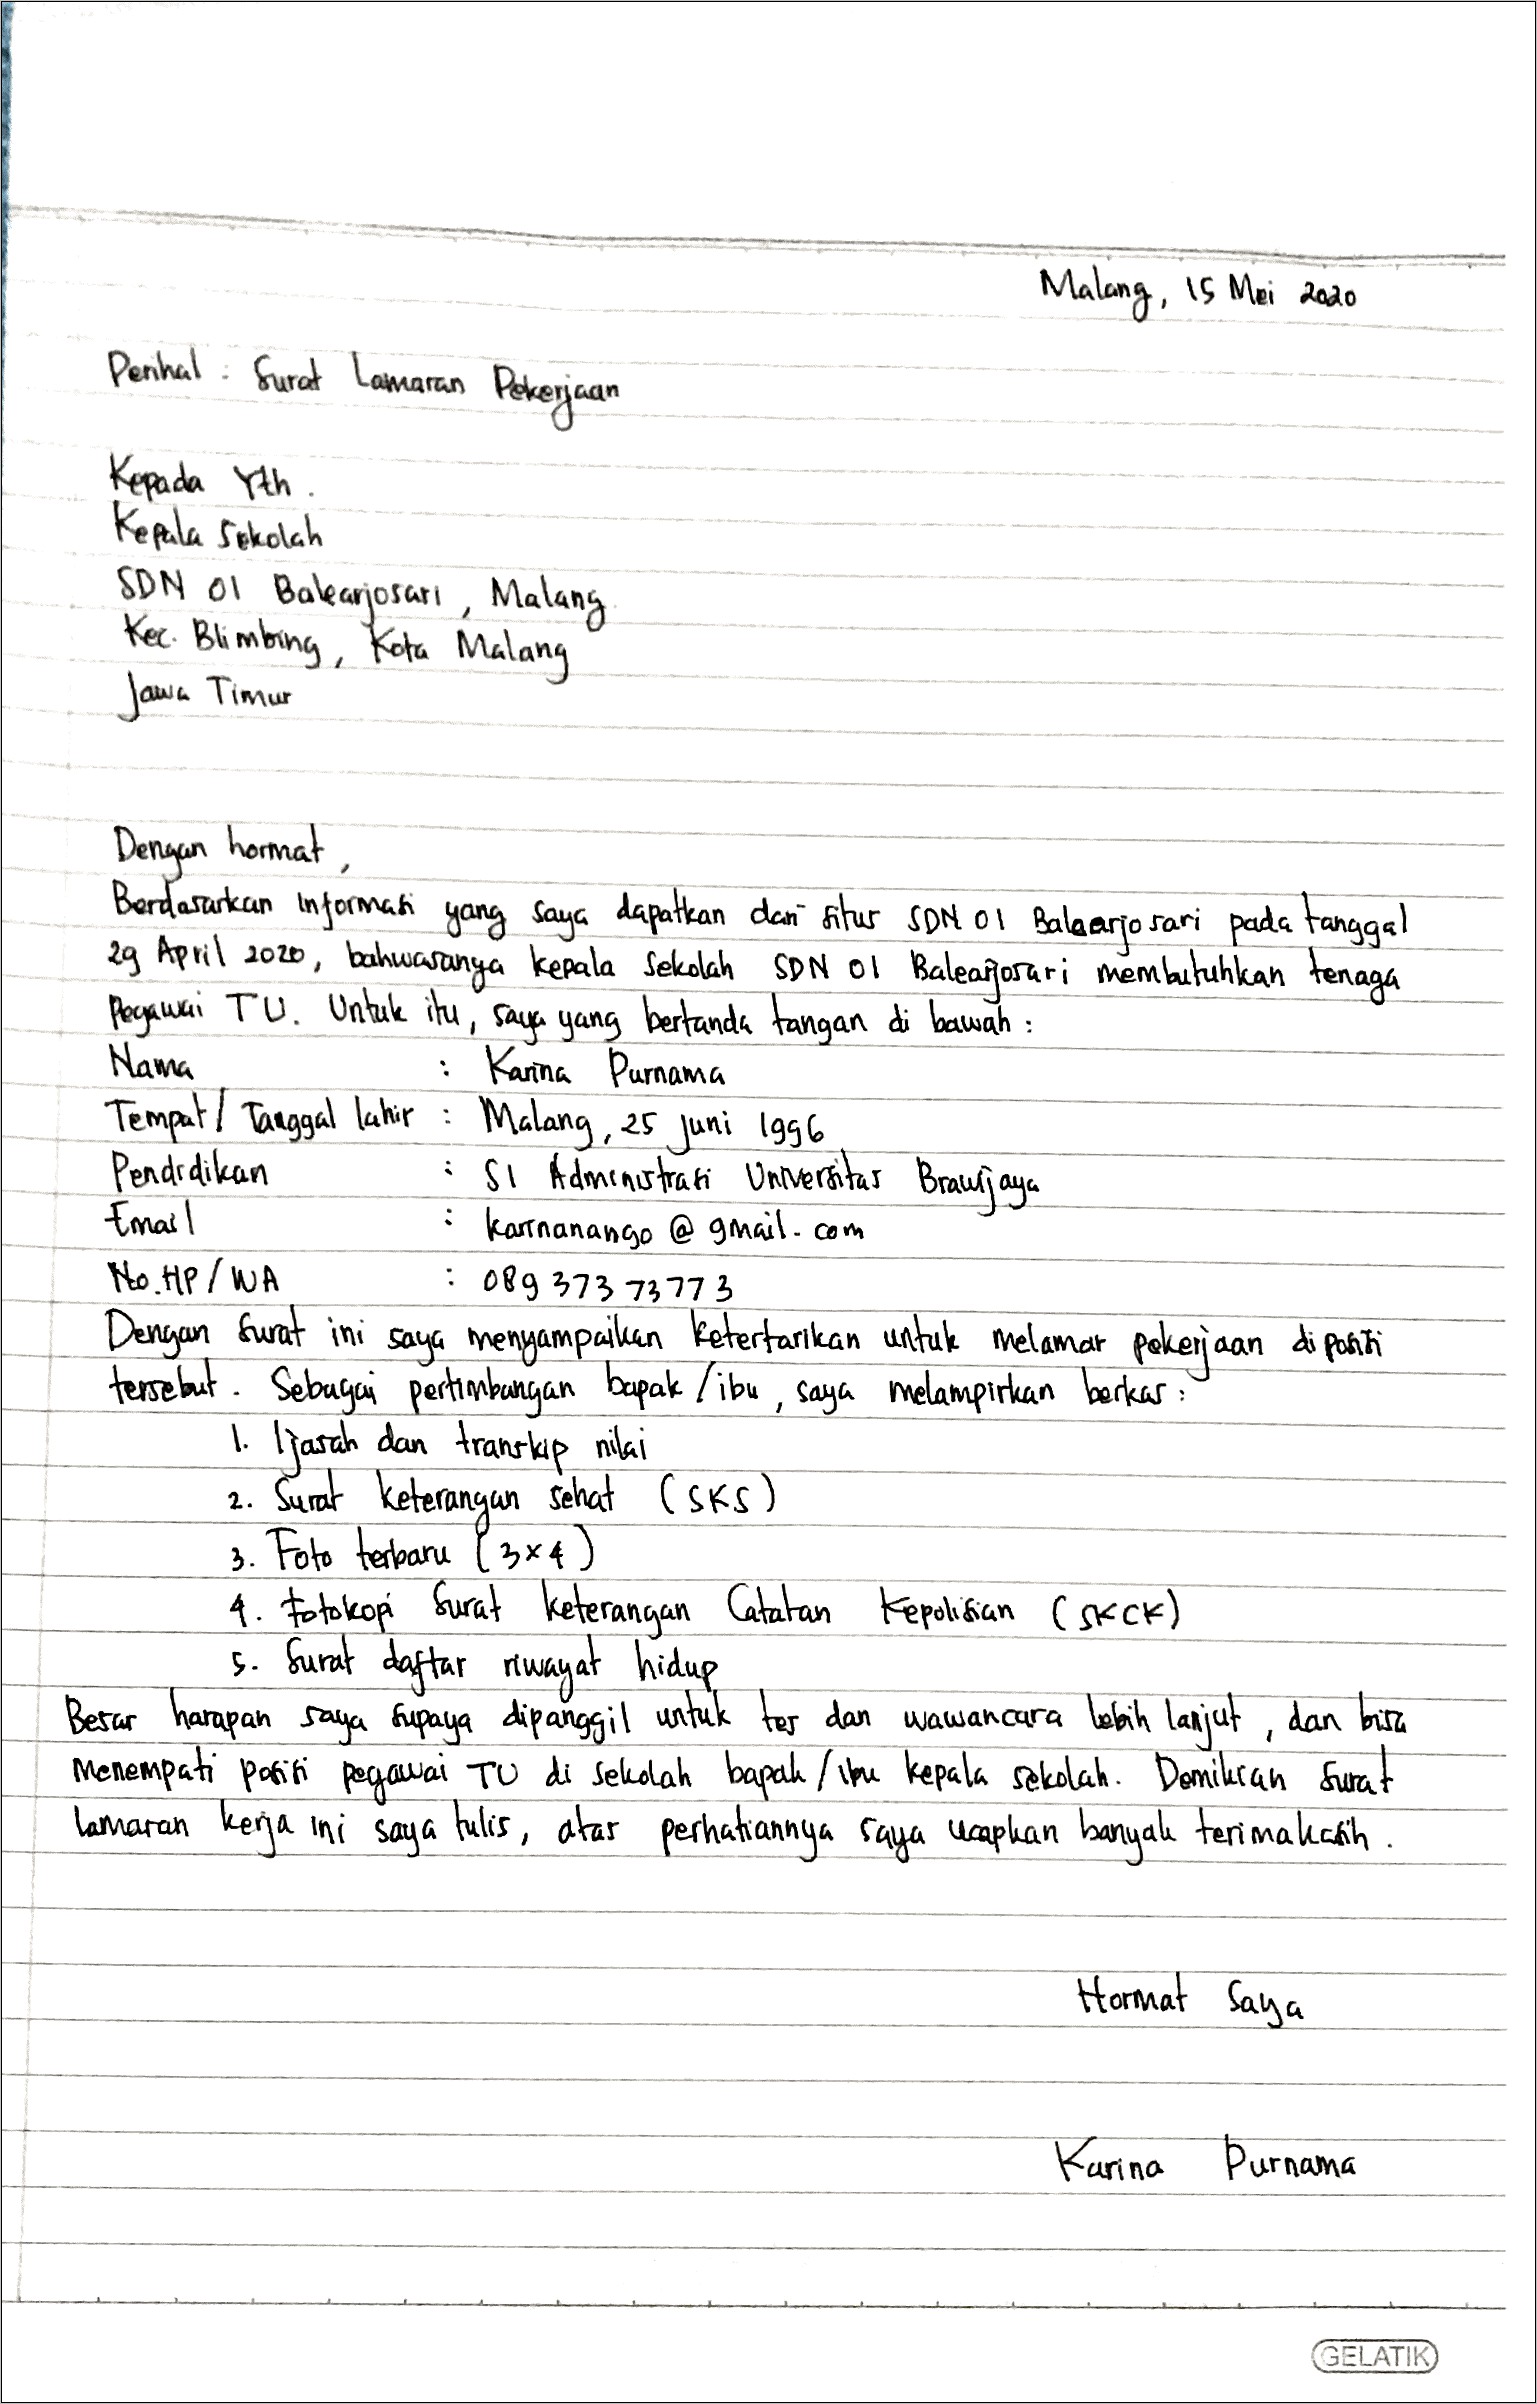 Malang, 15 Mei 2020
Perihal : Surat Lamaran Pekerjaan
Kepada Yth.
Kepala Sekolah
SDN 01 Balearjosari, Malang
Kec. Blimbing, Kota Malang
Jawa Timur
Dengan hormat,
Berdasarkan informasi yang saya dapatkan dari situs SDN 01 Balearjosari pada tanggal
29 April 2020, bahwasanya kepala sekolah SDN 01 Balearjosari membutuhkan tenaga
pegawai TU. Untuk itu, saya yang bertanda tangan di bawah :
Nama : Karina Purnama
Tempat / Tanggal lahir : Malang, 25 juni 1996
Pendidikan : S1 Administrasi Universitas Brawijaya
Email : karinanango@gmail.com
No.HP / WA : 089 373 73773
Dengan surat ini saya menyampaikan ketertarikan untuk melamar pekerjaan di posisi
tersebut. Sebagai pertimbangan bapak/ibu, saya melampirkan berkas :
1. Ijasah dan transkip nilai
2. Surat keterangan sehat (SKS)
3. Foto terbaru (3x4)
4. Fotokopi Surat keterangan Catatan Kepolisian (SKCK)
5. Surat daftar riwayat hidup
Besar harapan saya supaya dipanggil untuk tes dan wawancara lebih lanjut, dan bisa
menempati posisi pegawai TU di sekolah bapak/ibu kepala sekolah. Demikian surat
lamaran kerja ini saya tulis, atas perhatiannya saya ucapkan banyak terimakasih.
Hormat Saya
Karina Purnama
GELATIK